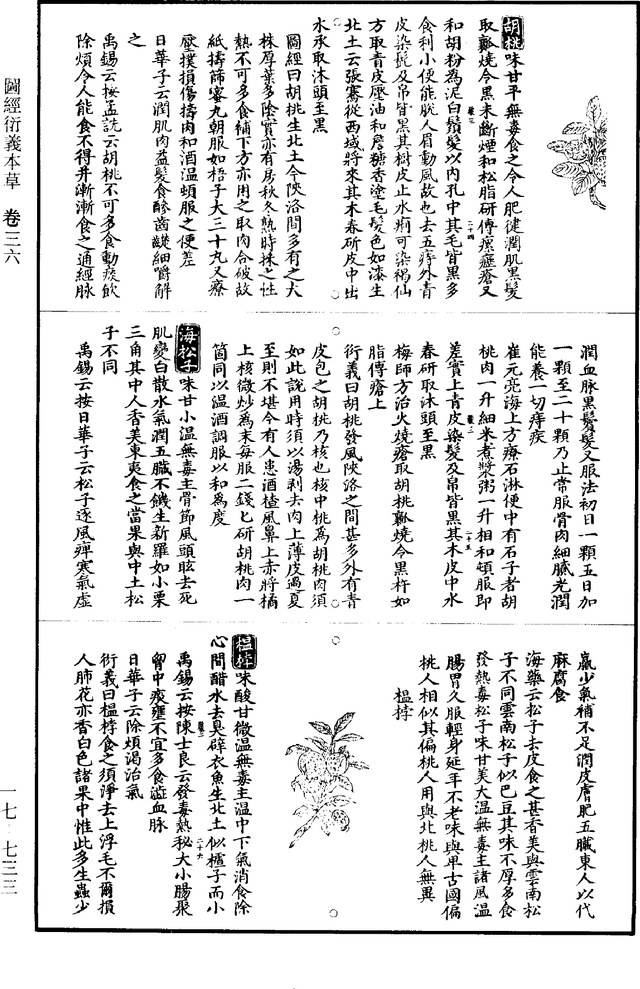 圖經衍義本草　卷三六
一七—七三三
胡桃味甘平無毒食之令人肥健潤肌黑髮
取瓤燒令黑未斷煙和松脂研傅瘰癧瘡又
和胡粉為泥白鬚髮以内孔中其毛皆黑多
食利小便能脫人眉動風故也去五痔外青
皮染髭及帛皆黑其樹皮止水痢可染褐仙
方取青皮壓油和詹糖香塗毛髮色如漆生
北土云張騫從西域將來其木春斫皮中出
水承取沐頭至黑
圖經曰胡桃生北土今陝洛間多有之大
株厚葉多陰實亦有房秋冬熟時採之性
熱不可多食補下方亦用之取肉合破故
紙擣篩蜜丸朝服如梧子大三十丸又療
壓撲損傷擣肉和酒温頓服之便差
日華子云潤肌肉益髮食酸齒齼細嚼解
之
禹錫云按孟詵云胡桃不可多食動痰飲
除煩令人能食不得并漸漸食之通經脉
潤血脉黑鬢髮又服法初日一顆五日加
一顆至二十顆乃止常服骨肉細膩光潤
能養一切痔疾
崔元亮海上方療石淋便中有石子者胡
桃肉一升細米煮漿粥一升相和頓服即
差實上青皮染髮及帛皆黑其木皮中水
春研取沐頭至黑
梅師方治火燒瘡取胡桃瓤燒令黑杵如
脂傅瘡上
衍義曰胡桃發風陝洛之間甚多外有青
皮包之胡桃乃核也核中桃為胡桃肉須
如此說用時須以湯剥去肉上薄皮過夏
至則不堪今有人患酒樝風鼻上赤將橘
上核微炒為末每服二錢匕研胡桃肉一
箇同以温酒調服以和為度
海松子味甘小温無毒主骨節風頭眩去死
肌變白散水氣潤五臟不饑生新羅如小栗
三角其中人香美東夷食之當果與中土松
子不同
禹錫云按日華子云松子逐風痹寒氣虛
羸少氣補不足潤皮膚肥五臟東人以代
麻腐食
海藥云松子去皮食之甚香美與雲南松
子不同雲南松子似巴豆其味不厚多食
發熱毒松子味甘美大温無毒主諸風温
腸胃久服輕身延年不老味與卑古國偏
桃人相似其偏桃人用與北桃人無異
榅桲
榅桲味酸甘微温無毒主温中下氣消食除
心間醋水去臭辟衣魚生北土似樝子而小
禹錫云按陳士良云發毒熱秘大小腸聚
胷中痰壅不宜多食澁血脉
日華子云除煩渴治氣
衍義曰榅桲食之須淨去上浮毛不爾損
人肺花亦香白色諸果中惟此多生蟲少